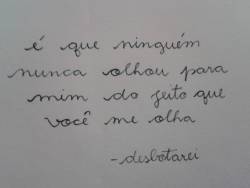 é que ninguém
nunca olhou para
mim do jeito que
você me olha
-desbotarei